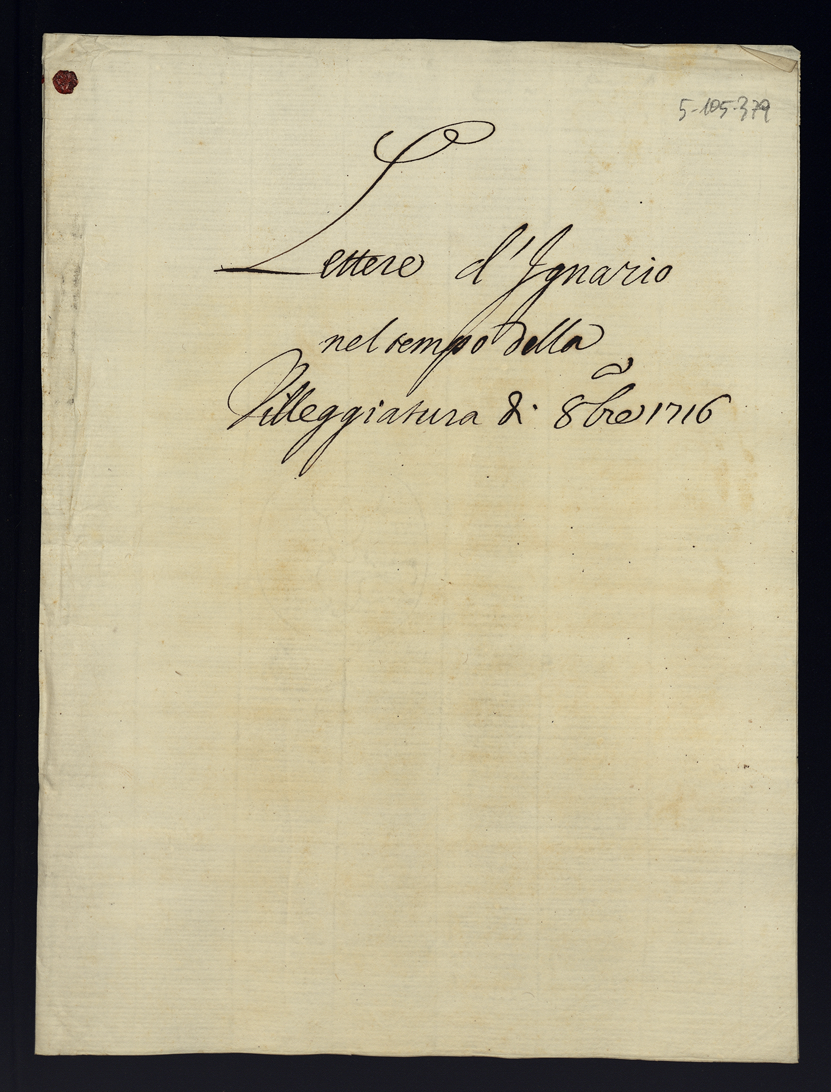 5-105-379
Lettere d'Ignazio
nel tempo della
Villeggiatura di 8bre 1716